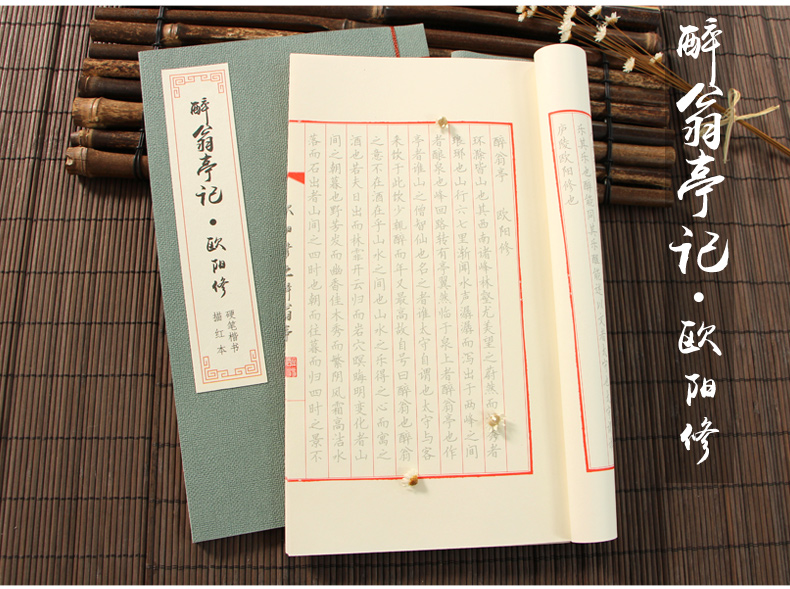 醉翁亭记·欧阳修
硬笔楷书
描红本
醉翁亭 欧阳修
环滁皆山也其西南诸峰林壑尤美望之蔚然而秀者
琅琊也山行六七里渐闻水声潺潺而泻出于两峰之间
者酿泉也峰回路转有亭翼然临于泉上者醉翁亭也作
亭者谁山之僧智仙也名之者谁太守自谓也太守与客
来饮于此饮少辄醉而年又最高故自号曰醉翁也醉翁
之意不在酒在乎山水之间也山水之乐得之心而寓之
酒也若夫日出而林霏开云归而岩穴暝晦明变化者山
间之朝暮也野芳发而幽香佳木秀而繁阴风霜高洁水
落而石出者山间之四时也朝而往暮而归四时之景不
乐其乐也醉能同其乐醒能述以文者
庐陵欧阳修也
醉翁亭记·欧阳修